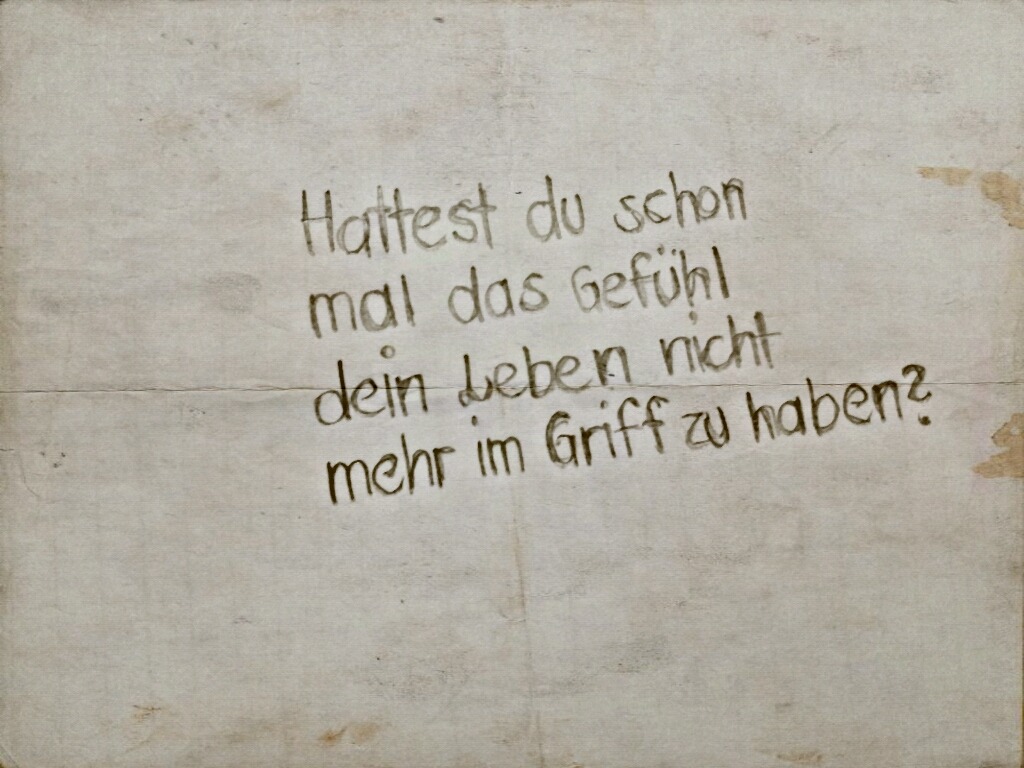 Hattest du schon
mal das Gefühl
dein Leben nicht
mehr im Griff zu haben?